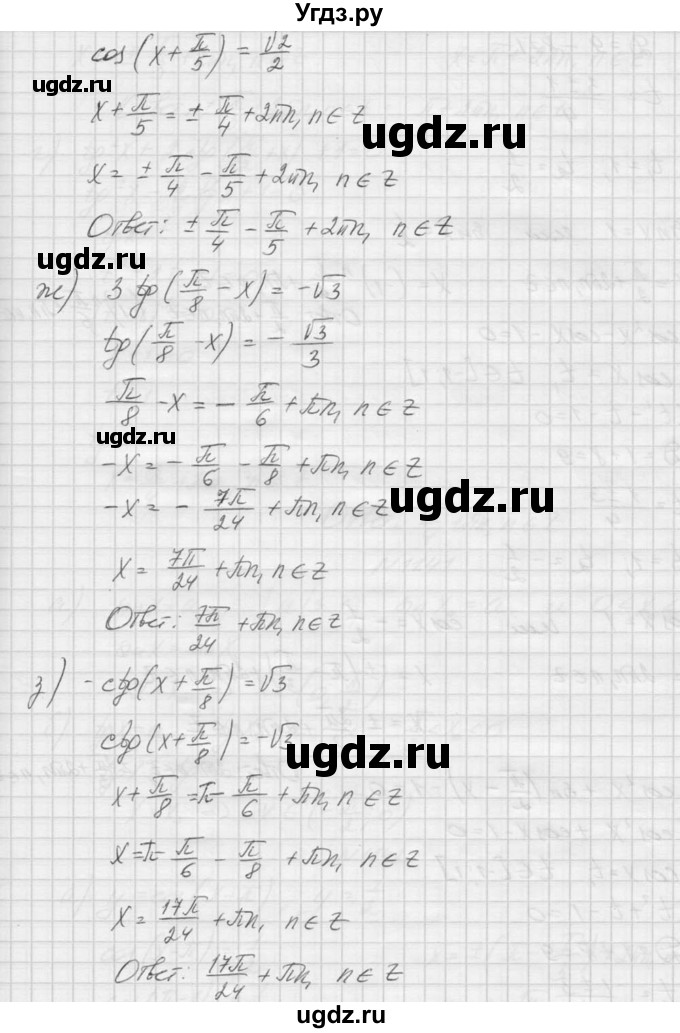 Угдз.ру
cos(x + π/5) = √2/2
ugdz.ru
x + π/5 = ± π/4 + 2πn, n ∈ Z
ugdz.ru
x = ± π/4 - π/5 + 2πn, n ∈ Z
Ответ: ± π/4 - π/5 + 2πn, n ∈ Z
ugdz.ru
ж) 3 tg(π/8 - x) = -√3
tg(π/8 - x) = - √3/3
π/8 - x = - π/6 + πn, n ∈ Z
ugdz.ru
-x = - π/6 - π/8 + πn, n ∈ Z
ugdz.ru
-x = - 7π/24 + πn, n ∈ Z
x = 7π/24 + πn, n ∈ Z
Ответ: 7π/24 + πn, n ∈ Z
з) -ctg(x + π/8) = √3
ctg(x + π/8) = -√3
ugdz.ru
x + π/8 = π - π/6 + πn, n ∈ Z
x = π - π/6 - π/8 + πn, n ∈ Z
x = 17π/24 + πn, n ∈ Z
Ответ: 17π/24 + πn, n ∈ Z
ugdz.ru